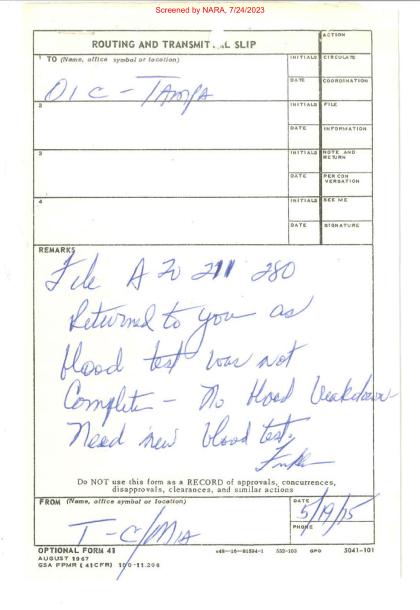 Screened by NARA, 7/24/2023
ROUTING AND TRANSMIT AL SLIP
ACTION
1 TO (Name, office symbol or location)
INITIALS
CIRCULATE
OIC - TAMPA
DATE
COORDINATION
2
INITIALS
FILE
DATE
INFORMATION
3
INITIALS
NOTE AND RETURN
DATE
PER CON VERSATION
4
INITIALS
SEE ME
DATE
SIGNATURE
REMARKS
File A 20 211 280
Returned to you as
blood test was not
Complete - No blood breakdown
Need new blood test.
Do NOT use this form as a RECORD of approvals, concurrences,
disapprovals, clearances, and similar actions
FROM (Name, office symbol or location)
DATE
T-C/MIA
5/19/75
PHONE
OPTIONAL FORM 41
c48-16-81594-1 552-103 GPO 5041-101
AUGUST 1967
GSA FPMR (41CFR) 100-11.206